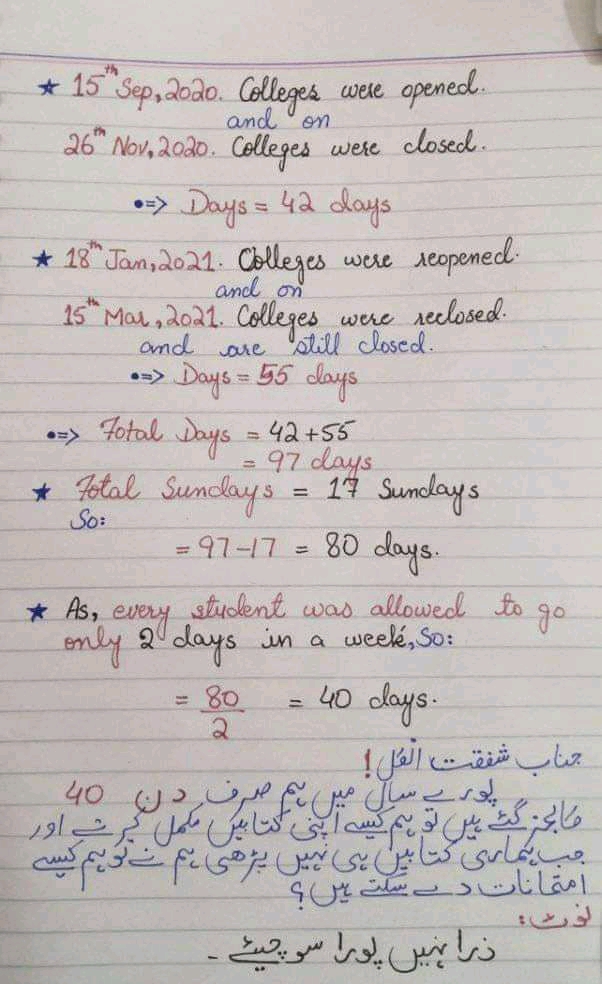 ★ 15th Sep, 2020. Colleges were opened.
and on
26th Nov, 2020. Colleges were closed.
•=> Days = 42 days
★ 18th Jan, 2021. Colleges were reopened.
and on
15th Mar, 2021. Colleges were reclosed.
and are still closed.
•=> Days = 55 days
•=> Total Days = 42+55
= 97 days
★ Total Sundays = 17 Sundays
So:
= 97-17 = 80 days.
★ As, every student was allowed to go
only 2 days in a week, So:
= 80/2 = 40 days.
جناب شفقت انکل!
پورے سال میں ہم صرف 40 دن
کالجز گئے ہیں تو ہم کیسے اپنی کتابیں مکمل کرتے اور
جب ہماری کتابیں ہی نہیں پڑھی ہم نے تو ہم کیسے
امتحانات دے سکتے ہیں؟
نوٹ:
ذرا نہیں پورا سوچیئے۔